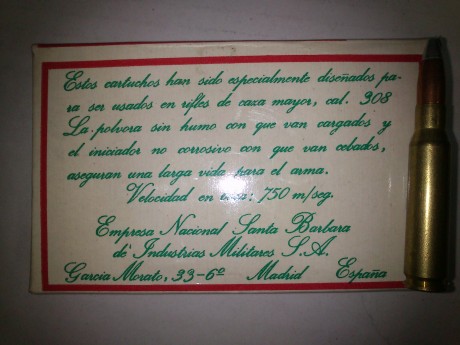 Estos cartuchos han sido especialmente diseñados pa-
ra ser usados en rifles de caza mayor, cal. 308
La polvora sin humo con que van cargados y
el iniciador no corrosivo con que van cebados,
aseguran una larga vida para el arma.
Velocidad en : 750 m/seg.
Empresa Nacional Santa Barbara
de Industrias Militares S.A.
Garcia Morato, 33-6º Madrid España